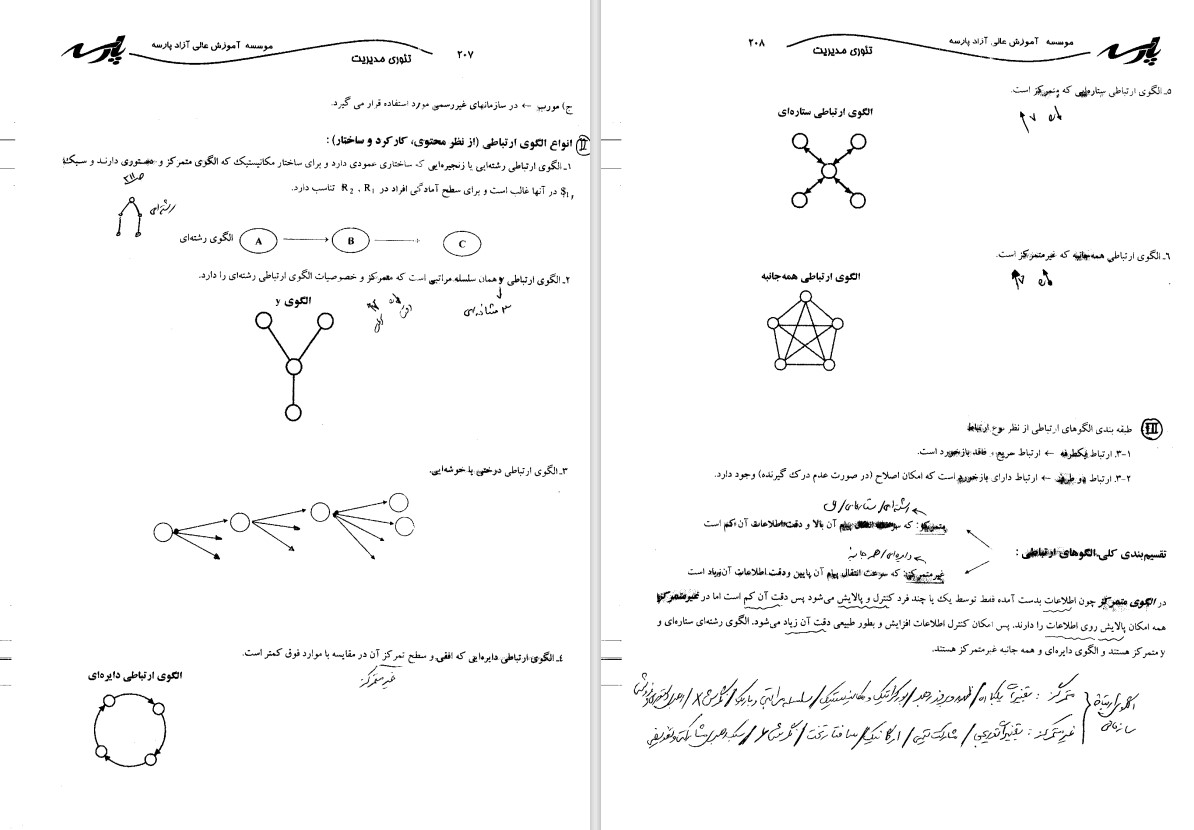 پارسه
موسسه آموزش عالی آزاد پارسه
تئوری مدیریت
۲۰۷
ج) مورب ← در سازمانهای غیررسمی مورد استفاده قرار می گیرد.
II انواع الگوی ارتباطی (از نظر محتوی، کارکرد و ساختار) :
۱ـ الگوی ارتباطی رشته‌ایی یا زنجیره‌ایی که ساختاری عمودی دارد و برای ساختار مکانیستیک که الگوی متمرکز و دستوری دارند و سبک
S₁ در آنها غالب است و برای سطح آمادگی افراد در R₁ ، R₂ تناسب دارد.
رشته‌ایی
الگوی رشته‌ای A B C
۲ـ الگوی ارتباطی y همان سلسله مراتبی است که متمرکز و خصوصیات الگوی ارتباطی رشته‌ای را دارد.
الگوی y
۳ـ الگوی ارتباطی درختی یا خوشه‌ایی.
۴ـ الگوی ارتباطی دایره‌ایی که افقی و سطح تمرکز آن در مقایسه با موارد فوق کمتر است.
غیرمتمرکز
الگوی ارتباطی دایره‌ای
پارسه
موسسه آموزش عالی آزاد پارسه
تئوری مدیریت
۲۰۸
۵ـ الگوی ارتباطی ستاره‌ایی که متمرکز است.
الگوی ارتباطی ستاره‌ای
۶ـ الگوی ارتباطی همه‌جانبه که غیرمتمرکز است.
الگوی ارتباطی همه‌جانبه
III طبقه بندی الگوهای ارتباطی از نظر نوع ارتباط
۳-۱. ارتباط یکطرفه ← ارتباط سریع ، فاقد بازخورد است.
۳-۲. ارتباط دو طرفه ← ارتباط دارای بازخورد است که امکان اصلاح (در صورت عدم درک گیرنده) وجود دارد.
متمرکز: که سرعت انتقال پیام آن بالا و دقت اطلاعات آن کم است
تقسیم‌بندی کلی الگوهای ارتباطی :
دایره‌ای / همه جانبه
غیرمتمرکز: که سرعت انتقال پیام آن پایین و دقت اطلاعات آن زیاد است
در الگوی متمرکز چون اطلاعات بدست آمده فقط توسط یک یا چند فرد کنترل و پالایش می‌شود پس دقت آن کم است اما در غیرمتمرکز
همه امکان پالایش روی اطلاعات را دارند. پس امکان کنترل اطلاعات افزایش و بطور طبیعی دقت آن زیاد می‌شود. الگوی رشته‌ای ستاره‌ای و
y متمرکز هستند و الگوی دایره‌ای و همه جانبه غیرمتمرکز هستند.
الگوی ارتباط
سازمانی
متمرکز :
غیرمتمرکز : تغییرات تدریجی / مشارکت / ارگانیک / ساختار تخت